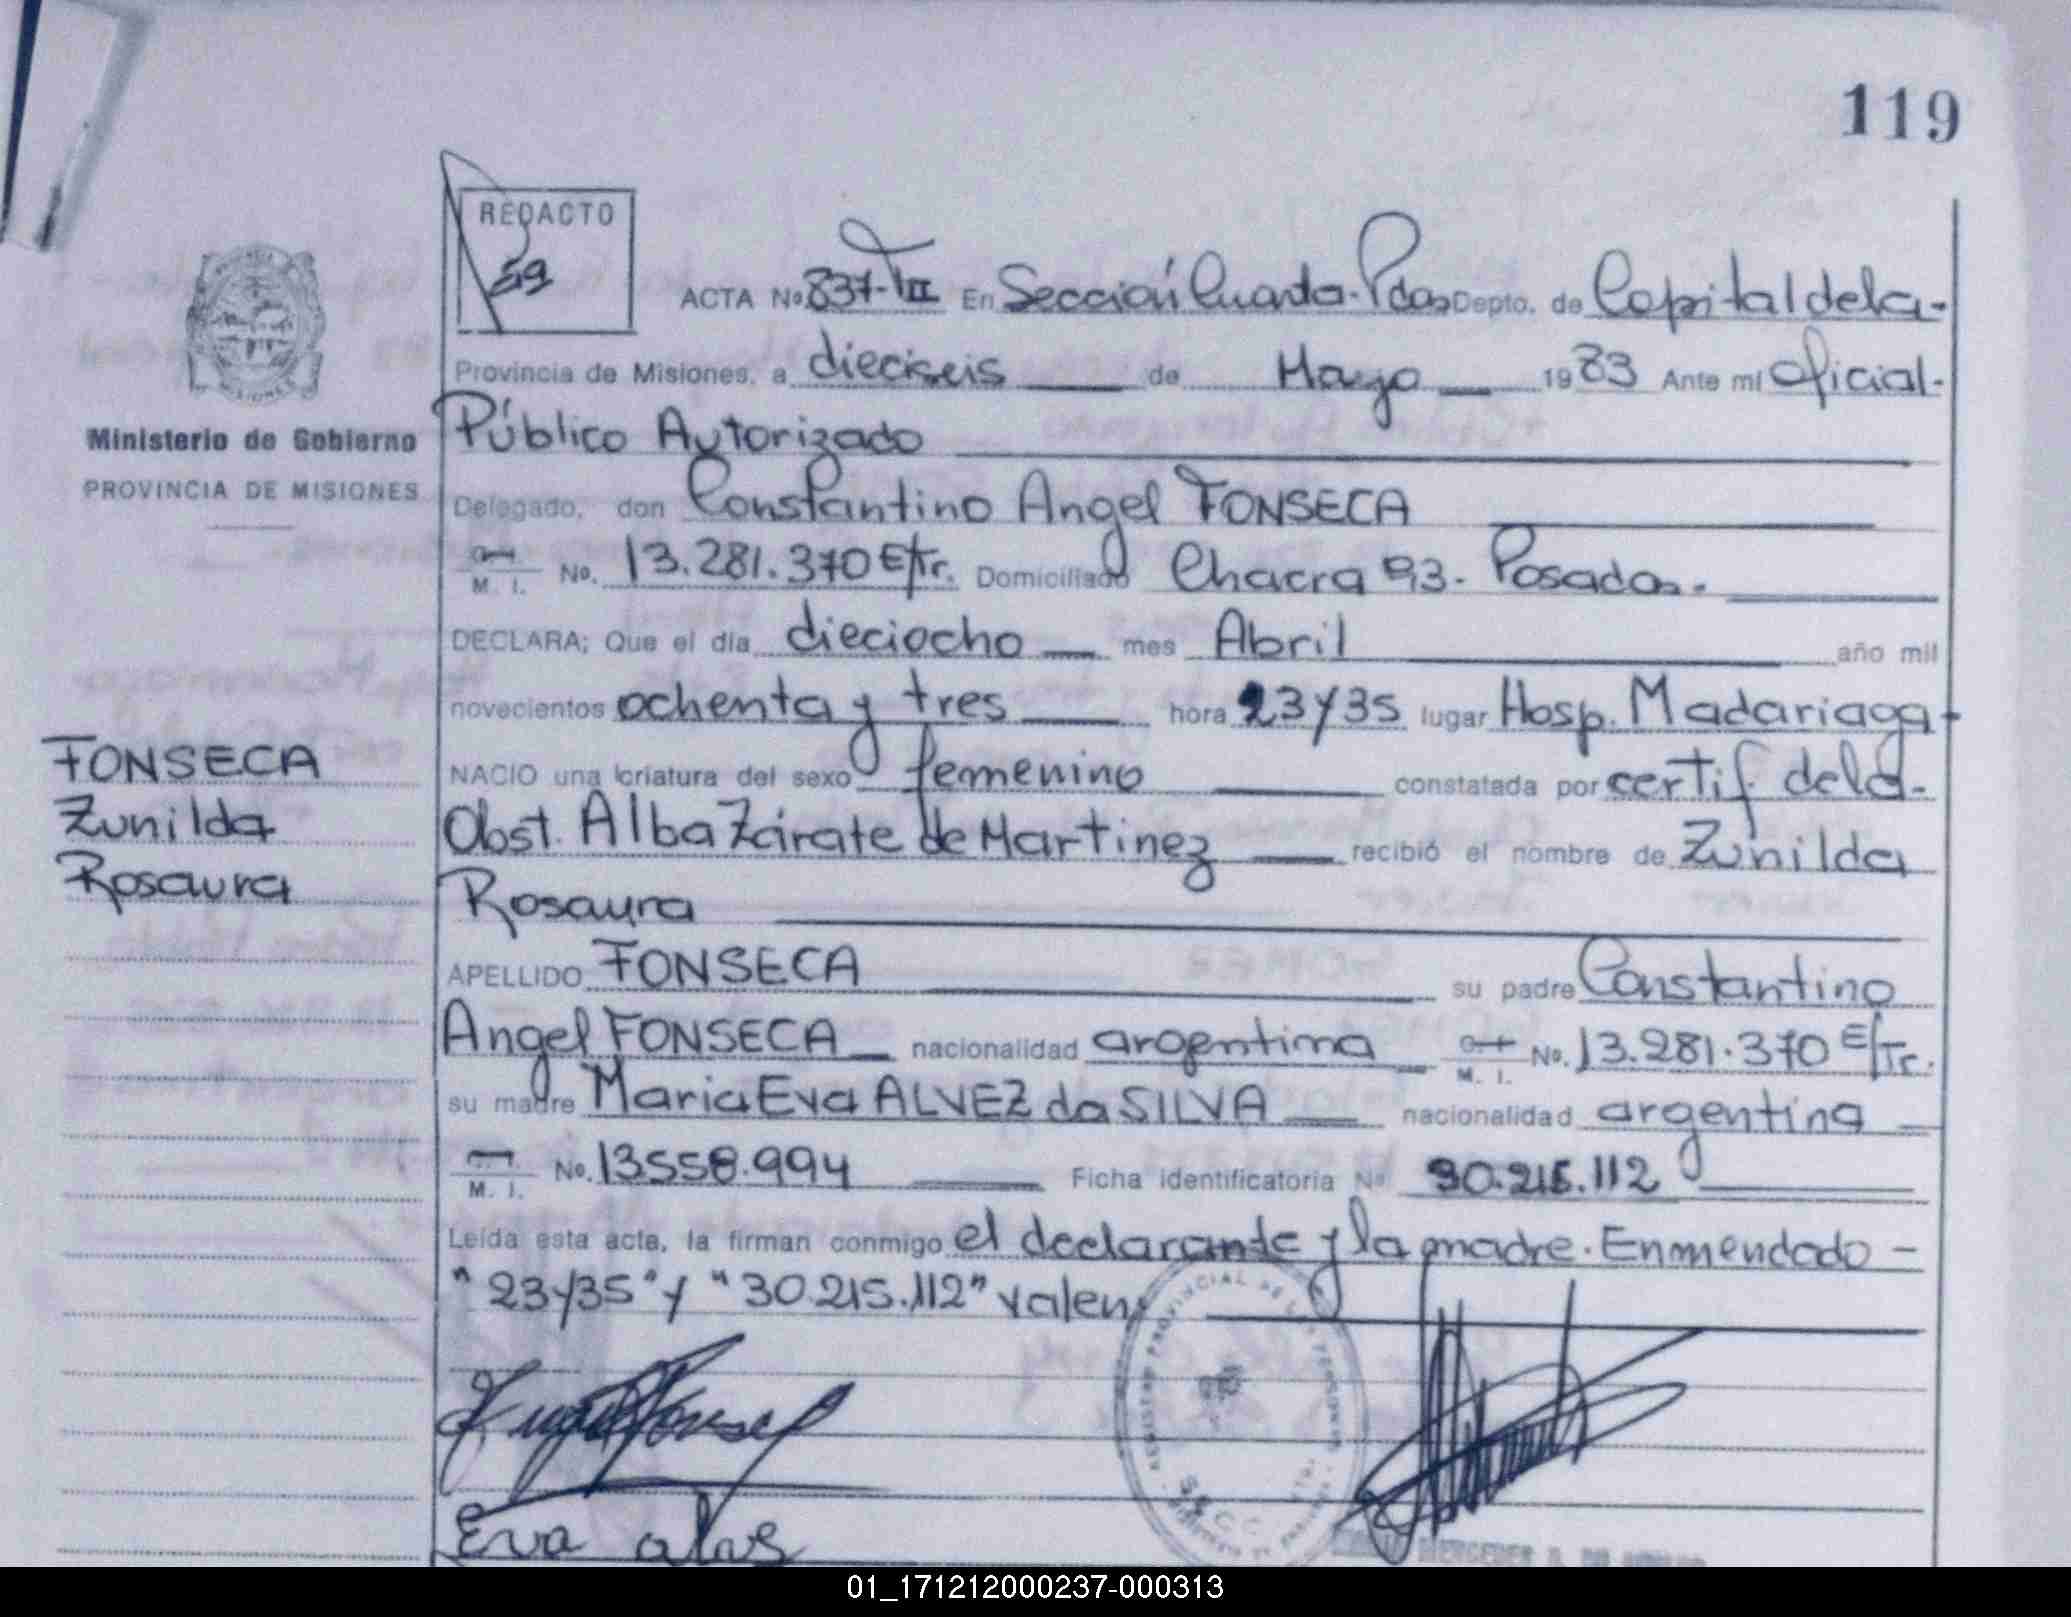 119
REDACTO
59
ACTA No. 837-TIII En Sección Cuarta. Pdas Depto. de Capital de la-
Provincia de Misiones, a dieciseis de Mayo 1983 Ante mi Oficial-
Público Autorizado
Ministerio de Gobierno
PROVINCIA DE MISIONES
Delegado, don Constantino Angel FONSECA
M. I. No. 13.281.370 E/tr. Domiciliado Chacra 93- Posadas-
DECLARA; Que el día dieciocho mes Abril año mil
novecientos ochenta y tres hora 23y35 lugar Hosp. Madariaga-
FONSECA
Zunilda
Rosaura
NACIO una criatura del sexo femenino constatada por certif. de la-
Obst. Alba Zárate de Martinez recibió el nombre de Zunilda
Rosaura
APELLIDO FONSECA su padre Constantino
Angel FONSECA nacionalidad argentina M. I. No. 13.281.370 E/Tr.
su madre Maria Eva ALVEZ da SILVA nacionalidad argentina
M. I. No. 13558.994 Ficha identificatoria Nº 30.215.112
Leída esta acta, la firman conmigo el declarante y la madre. Enmendado -
"23y35" y "30.215.112" valen.
REGISTRO PROVINCIAL DE LAS PERSONAS
Eva alves
01_171212000237-000313